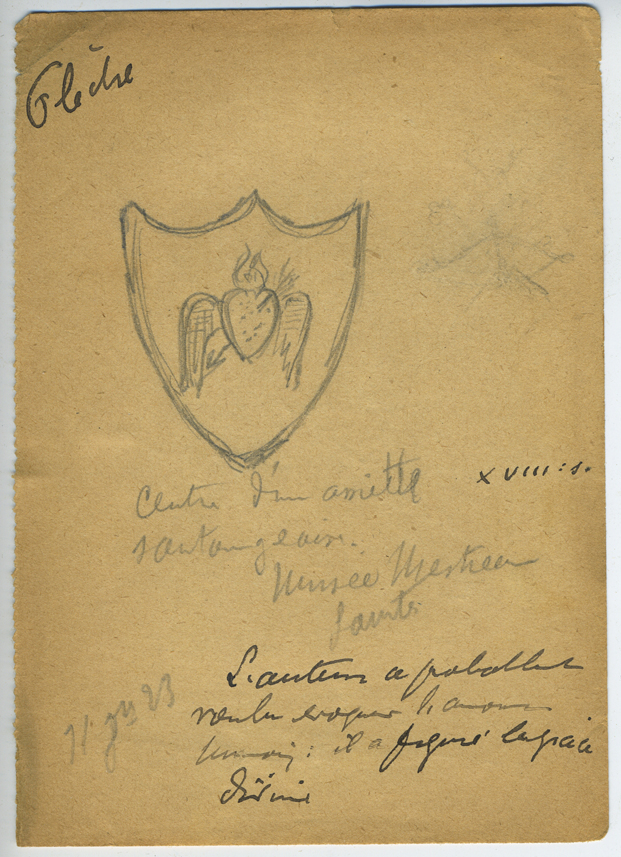 Flèche
Centre d'un assiette
XVIII: s.
santongeaise.
Musée Mestreau
Saintes
L'auteur a probablmt
voulu évoquer l'amour
humain : il a figuré la grâce
divine